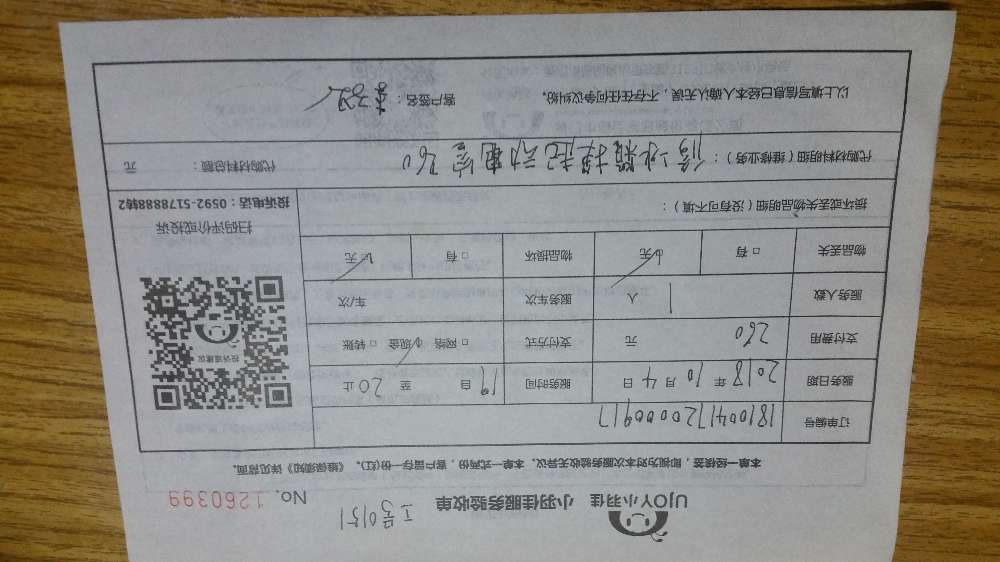 UJOY小羽佳 小羽佳服务验收单 工号0151 No. 1260399
本单一经核签，即视为对本次服务验收无异议。本单一式两份，客户留存一份(红)。《维保须知》详见背面。
订单编号 1810041720000917
服务日期 2018 年 10 月 4 日 服务时间 19 自 至 20 止
支付费用 260 元 支付方式 □ 网络 ☑ 现金 □ 转账
服务人数 1 人 服务车次 车/次
物品丢失 □ 有 ☑ 无 物品损坏 □ 有 ☑ 无
损坏或丢失物品明细（没有可不填）：
投诉或建议
扫码评价或投诉
投诉电话：0592-5178888转2
代购材料明细（维修业务）： 修冰箱换起动电容 260 代购材料总额： 元
以上填写信息已经本人确认无误，不存在任何争议纠纷。 客户签名：